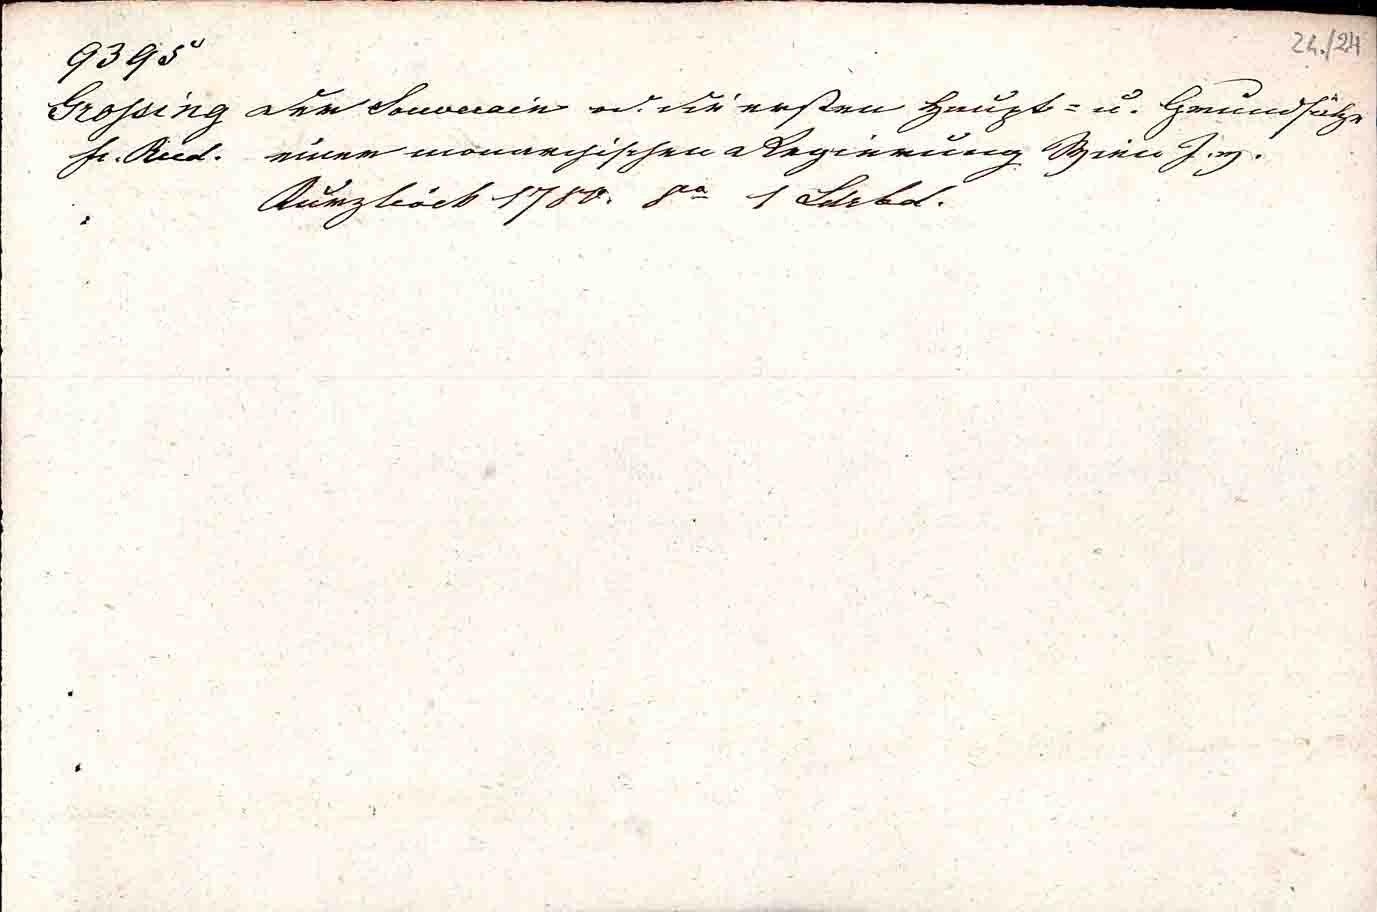 24./24
9395
Grossing der Souverain od. die ersten Haupt= u. Grundsätze
fr. Rud. einer monarchischen Regierung Wien J. v.
Kurzböck 1780. 8° 1 Ldrbd.